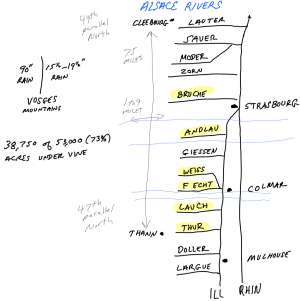 ALSACE RIVERS
49th
parallel
North
CLEEBOURG
LAUTER
SAUER
MODER
ZORN
75
MILES
90"
RAIN
15"-19"
RAIN
VOSGES
MOUNTAINS
BRUCHE
STRASBOURG
MILES
ANDLAU
GIESSEN
38,750 of 53,000 (73%)
ACRES UNDER VINE
WEISS
FECHT
COLMAR
47th
parallel
North
LAUCH
THUR
THANN
DOLLER
LARGUE
MULHOUSE
ILL
RHIN